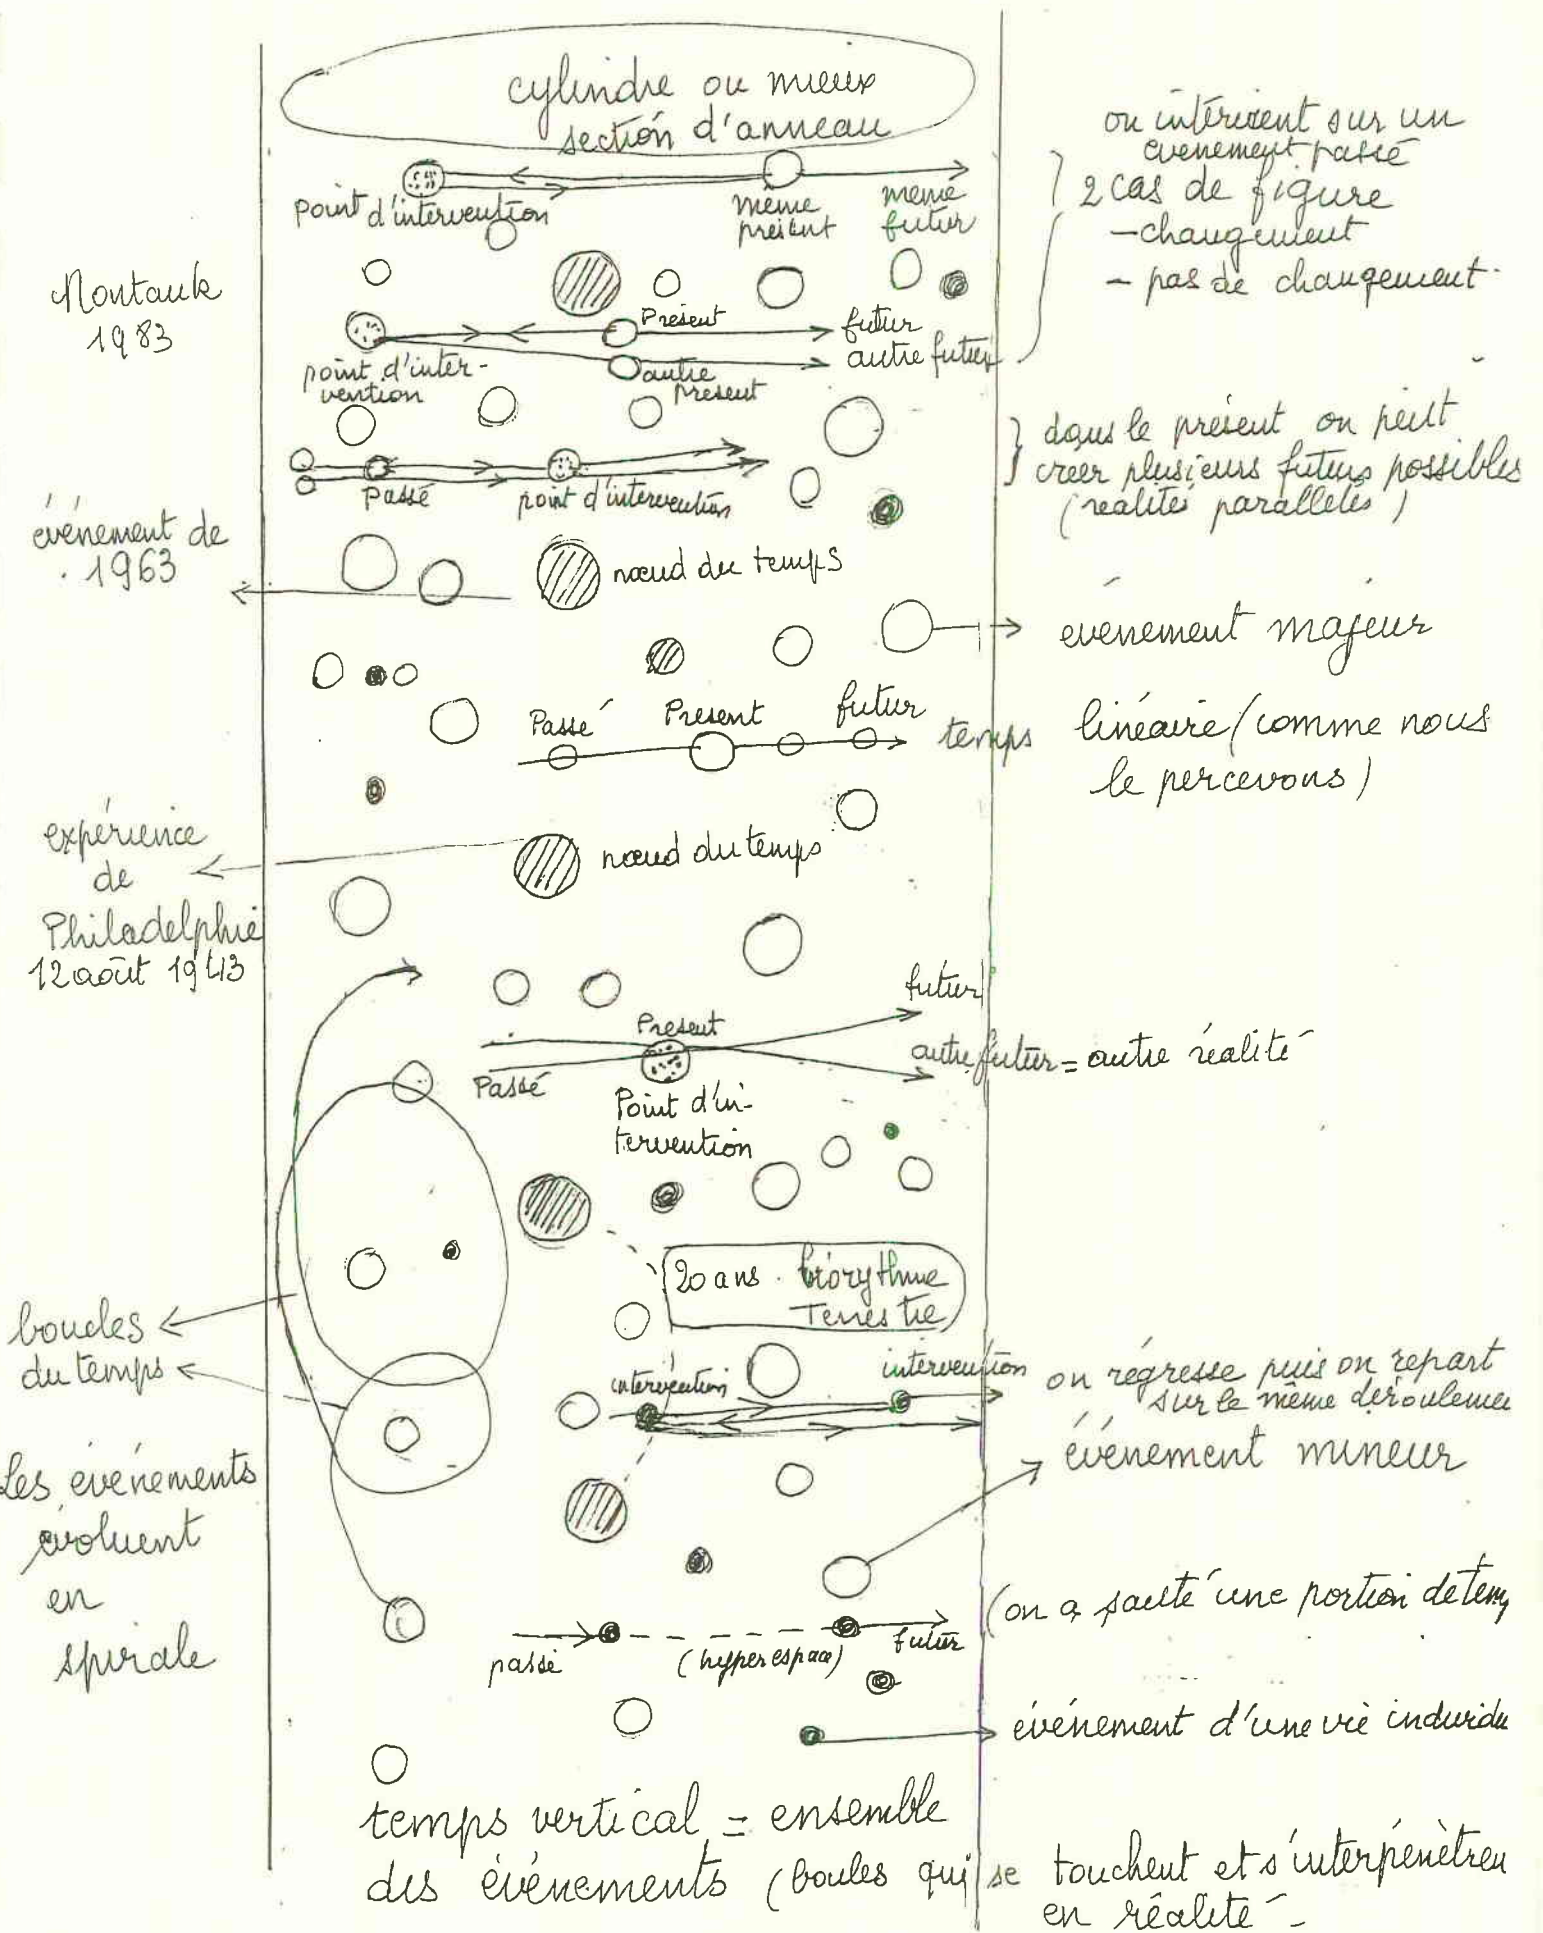 cylindre ou mieux
section d'anneau
on intervient sur un
évenement passé
2 cas de figure
- changement
- pas de changement.
point d'intervention
même
présent
meme
futur
Montauk
1983
Présent
futur
autre futur
point d'inter-
vention
autre
présent
dans le présent on peut
créer plusieurs futurs possibles
(réalités parallèles)
Passé
point d'intervention
événement de
1963
nœud du temps
evénement majeur
Passé
Present
futur
temps linéaire (comme nous
le percevons)
expérience
de
Philadelphie
12 août 1943
nœud du temps
futur
Présent
autre futur = autre réalité
Passé
Point d'in-
tervention
20 ans. biorythme
Terrestre
boucles
du temps
intervention
intervention
on régresse puis on repart
sur le même dérouleme
événement mineur
Les événements
évoluent
en
spirale
(on a sauté une portion de tem
passé
(hyperespace)
futur
événement d'une vie individu
temps vertical = ensemble
des événements (boules qui se touchent et s'interpénètren
en réalité -